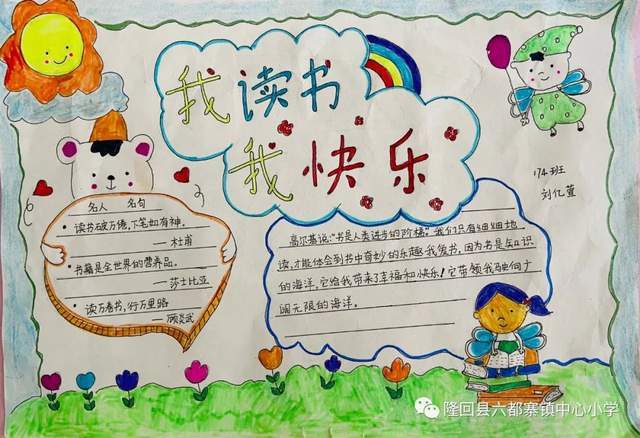 我读书
我快乐
174班
刘亿萱
名人 名句
• 读书破万卷,下笔如有神.
— 杜甫
• 书籍是全世界的营养品.
— 莎士比亚
• 读万卷书,行万里路
— 顾炎武
高尔基说:“书是人类进步的阶梯”我们只有细细地
读,才能体会到书中奇妙的乐趣.我爱书,因为书是知识
的海洋,它给我带来了幸福和快乐!它带领我驶向广
阔无限的海洋.
隆回县六都寨镇中心小学